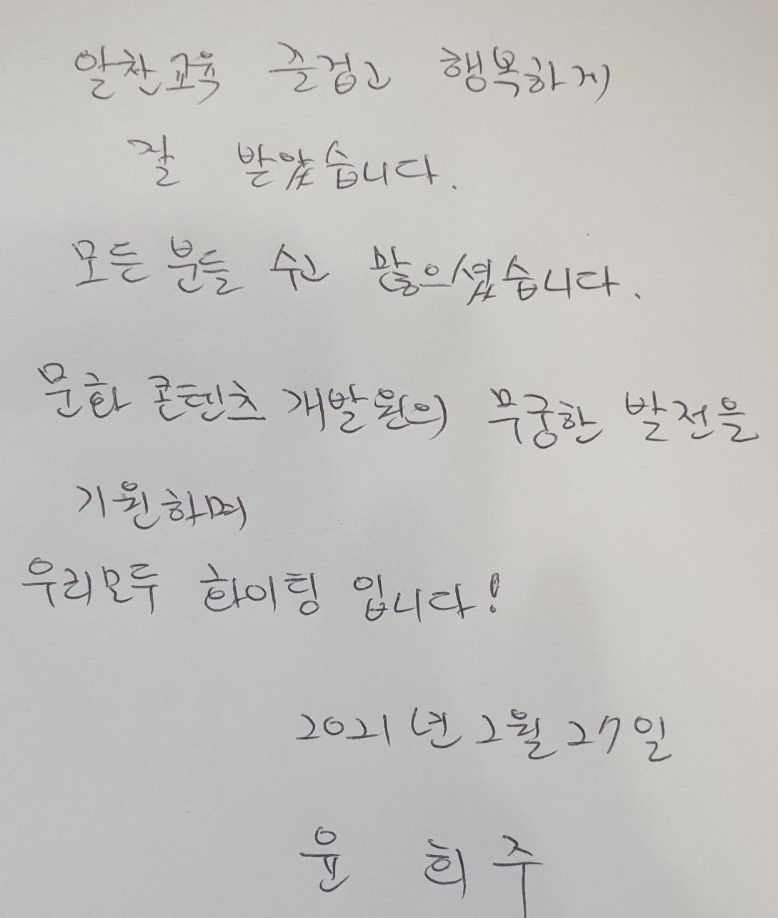 알찬교육 즐겁고 행복하게
잘 받았습니다.
모든 분들 수고 많으셨습니다.
문화 콘텐츠 개발원의 무궁한 발전을
기원하며
우리모두 화이팅 입니다!
2021년 2월 27일
윤 희 주